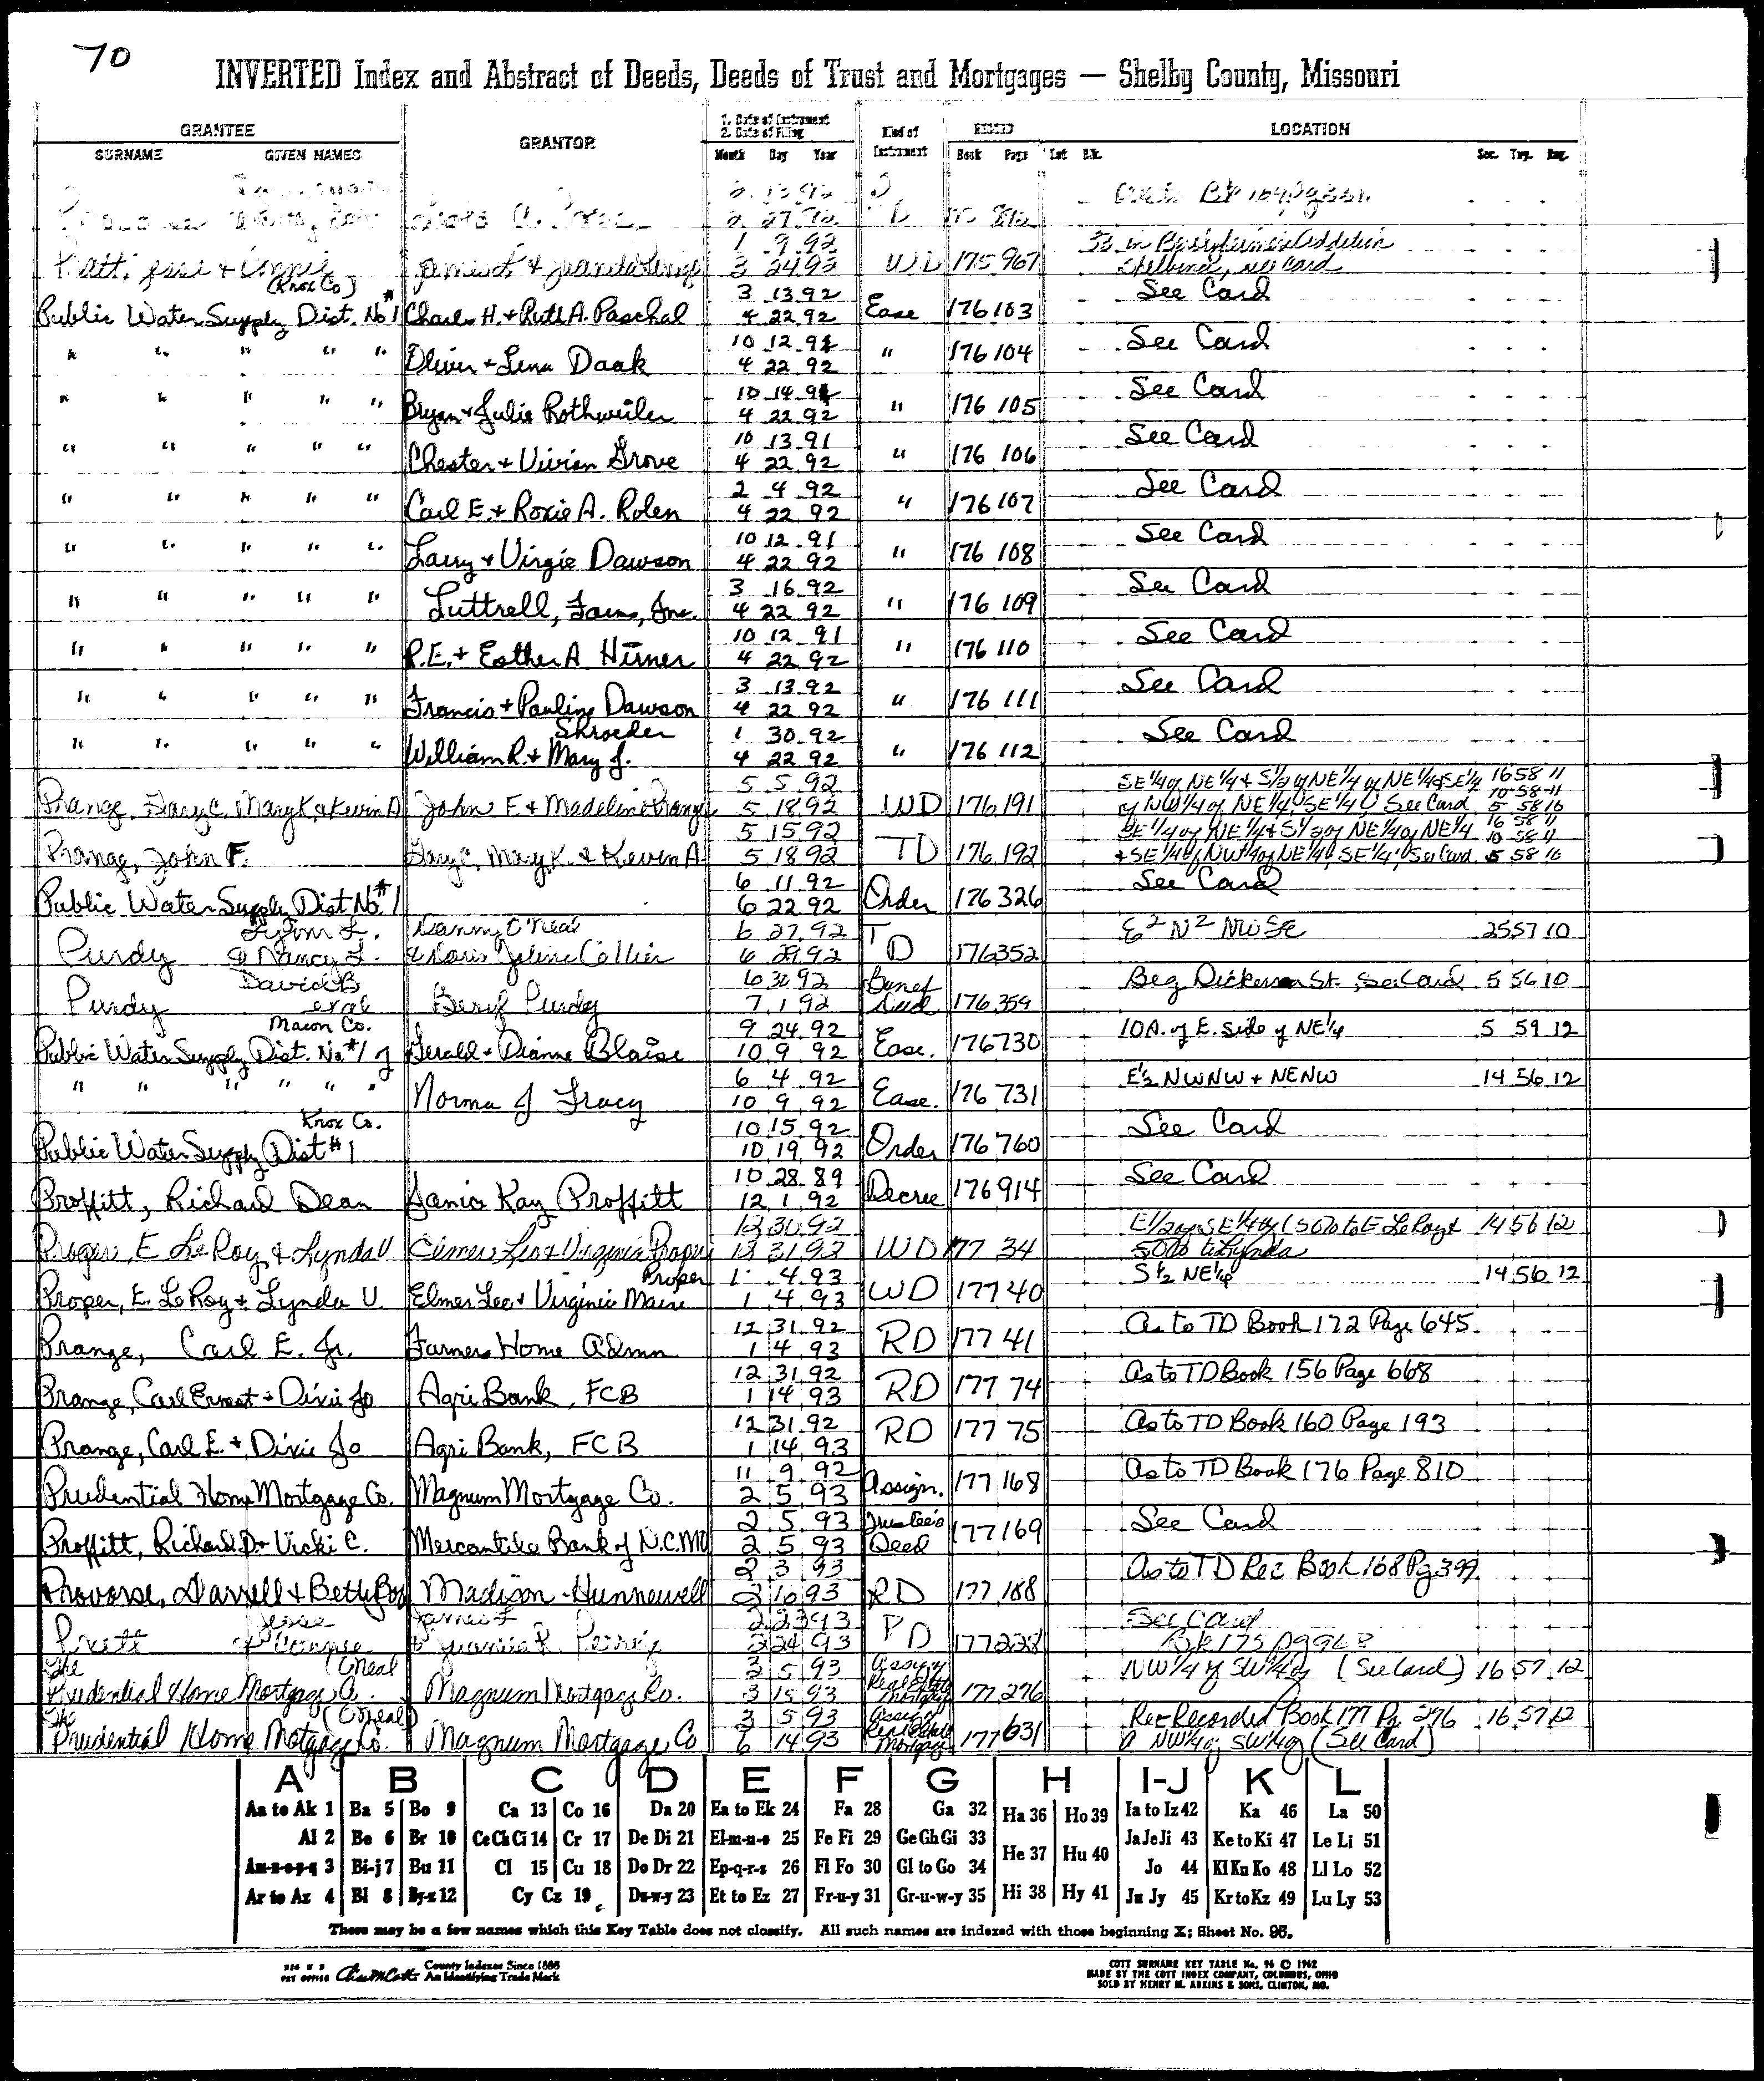 70
INVERTED Index and Abstract of Deeds, Deeds of Trust and Mortgages — Shelby County, Missouri
GRANTEE GRANTOR 1. Date of Instrument 2. Date of Filing Kind of Instrument RECORD LOCATION
SURNAME GIVEN NAMES Month Day Year Book Pags Lot Blk. Sec. Twp. Rng.
2 13 92
2 27 92 D
1 9 92
3 24 92 WD 175 967 Shelbina, see Card
(Knox Co) 3 13 92 See Card
Public Water Supply Dist. No #1 Charles H. + Ruth A. Paschal 4 22 92 Ease 176 103
10 12 91 See Card
" " " " " Oliver + Lena Daak 4 22 92 " 176 104
10 14 91 See Card
" " " " " Bryan + Julie Rothweiler 4 22 92 " 176 105
10 13 91 See Card
" " " " " Chester + Vivian Grove 4 22 92 " 176 106
2 4 92 See Card
" " " " " Carl E. + Roxie A. Rolen 4 22 92 " 176 107
10 12 91 See Card
" " " " " Larry + Virgie Dawson 4 22 92 " 176 108
3 16 92 See Card
" " " " " Luttrell, Farms, Inc. 4 22 92 " 176 109
10 12 91 See Card
" " " " " R.E. + Esther A. Hirner 4 22 92 " 176 110
3 13 92 See Card
" " " " " Francis + Pauline Dawson 4 22 92 " 176 111
Shroeder 1 30 92 See Card
" " " " " William R. + Mary J. 4 22 92 " 176 112
5 5 92 SE 1/4 of NE 1/4 + S 1/2 of NE 1/4 of NE 1/4 + SE 1/4 16 58 11
10-58-11
Prange, Gary C, Mary K, & Kevin A John F + Madeline Prange 5 18 92 WD 176 191 of NW 1/4 of NE 1/4, SE 1/4, See Card 5 58 10
5 15 92 SE 1/4 of NE 1/4 + S 1/2 of NE 1/4 of NE 1/4 16 58 11
10 58 11
Prange, John F. Gary C, Mary K. & Kevin A. 5 18 92 TD 176 192 + SE 1/4 of NW 1/4 of NE 1/4, SE 1/4, See Card 5 58 10
6 11 92 See Card
Public Water Supply Dist No. #1 6 22 92 Order 176 326
Danny O'Neal 6 27 92 E2 N2 NW SE 25 57 10
Purdy & Nancy L. & Doris Jolene Collier 6 29 92 TD 176 352
David B 6 30 92 Benef Beg Dickerson St. See Card 5 56 10
Purdy et al Beryl Purdy 7 1 92 Deed 176 359
Macon Co. 9 24 92 10A. of E. side of NE 1/4 5 59 12
Public Water Supply Dist. No. #1 of Gerald + Dianne Blaise 10 9 92 Ease. 176 730
6 4 92 E 1/2 NWNW + NENW 14 56 12
" " " " " " Norma J Tracy 10 9 92 Ease. 176 731
Knox Co. 10 15 92 See Card
Public Water Supply Dist #1 10 19 92 Order 176 760
10 28 89 See Card
Proffitt, Richard Dean Janice Kay Proffitt 12 1 92 Decree 176 914
12 30 92 E 1/2 of SE 1/4 of (50% to E LeRoy & 14 56 12
Proper, E LeRoy & Lynda U Elmer Leo & Virginia Proper 12 31 92 WD 177 34 50% to Lynda
Proper 1 4 93 S 1/2 NE 1/4 14 56 12
Proper, E. LeRoy + Lynda U. Elmer Leo + Virginia Maxine 1 4 93 WD 177 40
12 31 92 As to TD Book 172 Page 645
Prange, Carl E. Jr. Farmers Home Admn 1 4 93 RD 177 41
12 31 92 As to TD Book 156 Page 668
Prange, Carl Ernest + Dixie Jo Agri Bank, FCB 1 14 93 RD 177 74
12 31 92 As to TD Book 160 Page 193
Prange, Carl E. + Dixie Jo Agri Bank, FCB 1 14 93 RD 177 75
11 9 92 As to TD Book 176 Page 810
Prudential Home Mortgage Co. Magnum Mortgage Co. 2 5 93 Assign. 177 168
2 5 93 Trustee's See Card
Proffitt, Richard D + Vicki C. Mercantile Bank of N.C. MO 2 5 93 Deed 177 169
2 3 93 As to TD Rec Book 168 Pg 399
Provorse, Darrell + Betty Madison-Hunnewell 2 10 93 RD 177 188
Jesse James F 2 23 93 See Card
Pratt & Connie & Juanita R. 2 24 93 177 228 Bk 175 Pg 968
The (O'Neal 3 5 93 Assign of NW 1/4 of SW 1/4 of (See Card) 16 57 12
Prudential Home Mortgage Co. Magnum Mortgage Co. 3 15 93 Real Estate Mortgage 177 276
The (O'Neal) 3 5 93 Assign of Re-Recorded Book 177 Pg 276 16 57 12
Prudential Home Mortgage Co. Magnum Mortgage Co 6 14 93 Real Estate Mortgage 177 631 NW 1/4 of SW 1/4 of (See Card)
A B C D E F G H I-J K L
Aa to Ak 1 Ba 5 Bo 9 Ca 13 Co 16 Da 20 Ea to Ek 24 Fa 28 Ga 32 Ha 36 Ho 39 Ia to Iz 42 Ka 46 La 50
Al 2 Be 6 Br 10 Ce Ch Ci 14 Cr 17 De Di 21 El-m-n-o 25 Fe Fi 29 Ge Gh Gi 33 He 37 Hu 40 Ja Je Ji 43 Ke to Ki 47 Le Li 51
Am-n-o-p-q 3 Bi-j 7 Bu 11 Cl 15 Cu 18 Do Dr 22 Ep-q-r-s 26 Fl Fo 30 Gl to Go 34 Jo 44 Kl Kn Ko 48 Ll Lo 52
Ar to Az 4 Bl 8 By-z 12 Cy Cz 19 Du-w-y 23 Et to Ez 27 Fr-u-y 31 Gr-u-w-y 35 Hi 38 Hy 41 Ju Jy 45 Kr to Kz 49 Lu Ly 53
There may be a few names which this Key Table does not classify. All such names are indexed with those beginning X; Sheet No. 96.
REG U S PAT OFFICE County Indexes Since 1888 An Identifying Trade Mark
COTT SURNAME KEY TABLE No. 96 © 1962
MADE BY THE COTT INDEX COMPANY, COLUMBUS, OHIO
SOLD BY HENRY M. ADKINS & SONS, CLINTON, MO.